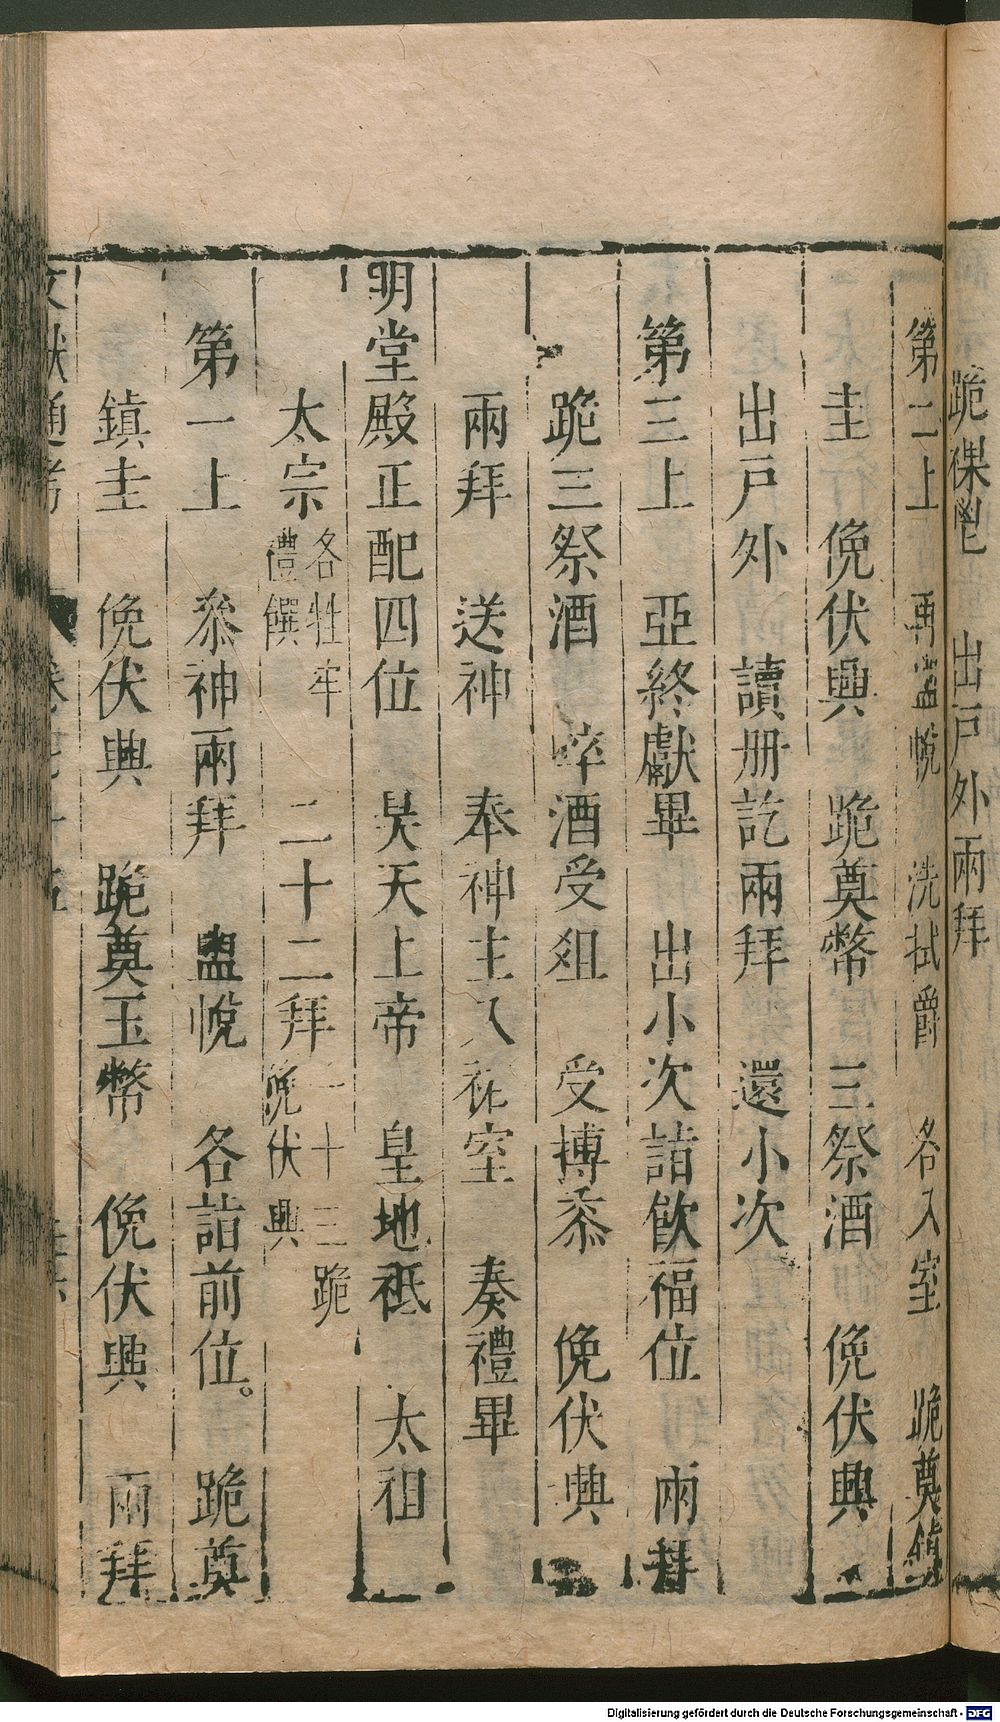 跪祼鬯　出戶外兩拜
第二上　再盥帨　洗拭爵　各入室　跪奠鎮
圭　俛伏興　跪奠幣　三祭酒　俛伏興
出戶外　讀册訖兩拜　還小次
第三上　亞終獻畢　出小次詣飲福位　兩拜
跪三祭酒　啐酒受俎　受摶黍　俛伏興
兩拜　送神　奉神主入祏室　奏禮畢
明堂殿正配四位　昊天上帝　皇地祇　太祖
太宗各牲牢禮饌　二十二拜一十三跪俛伏興
第一上　叅神兩拜　盥帨　各詣前位。跪奠
鎮圭　俛伏興　跪奠玉幣　俛伏興　兩拜
文獻通考　卷七十五
Digitalisierung gefördert durch die Deutsche Forschungsgemeinschaft - DFG